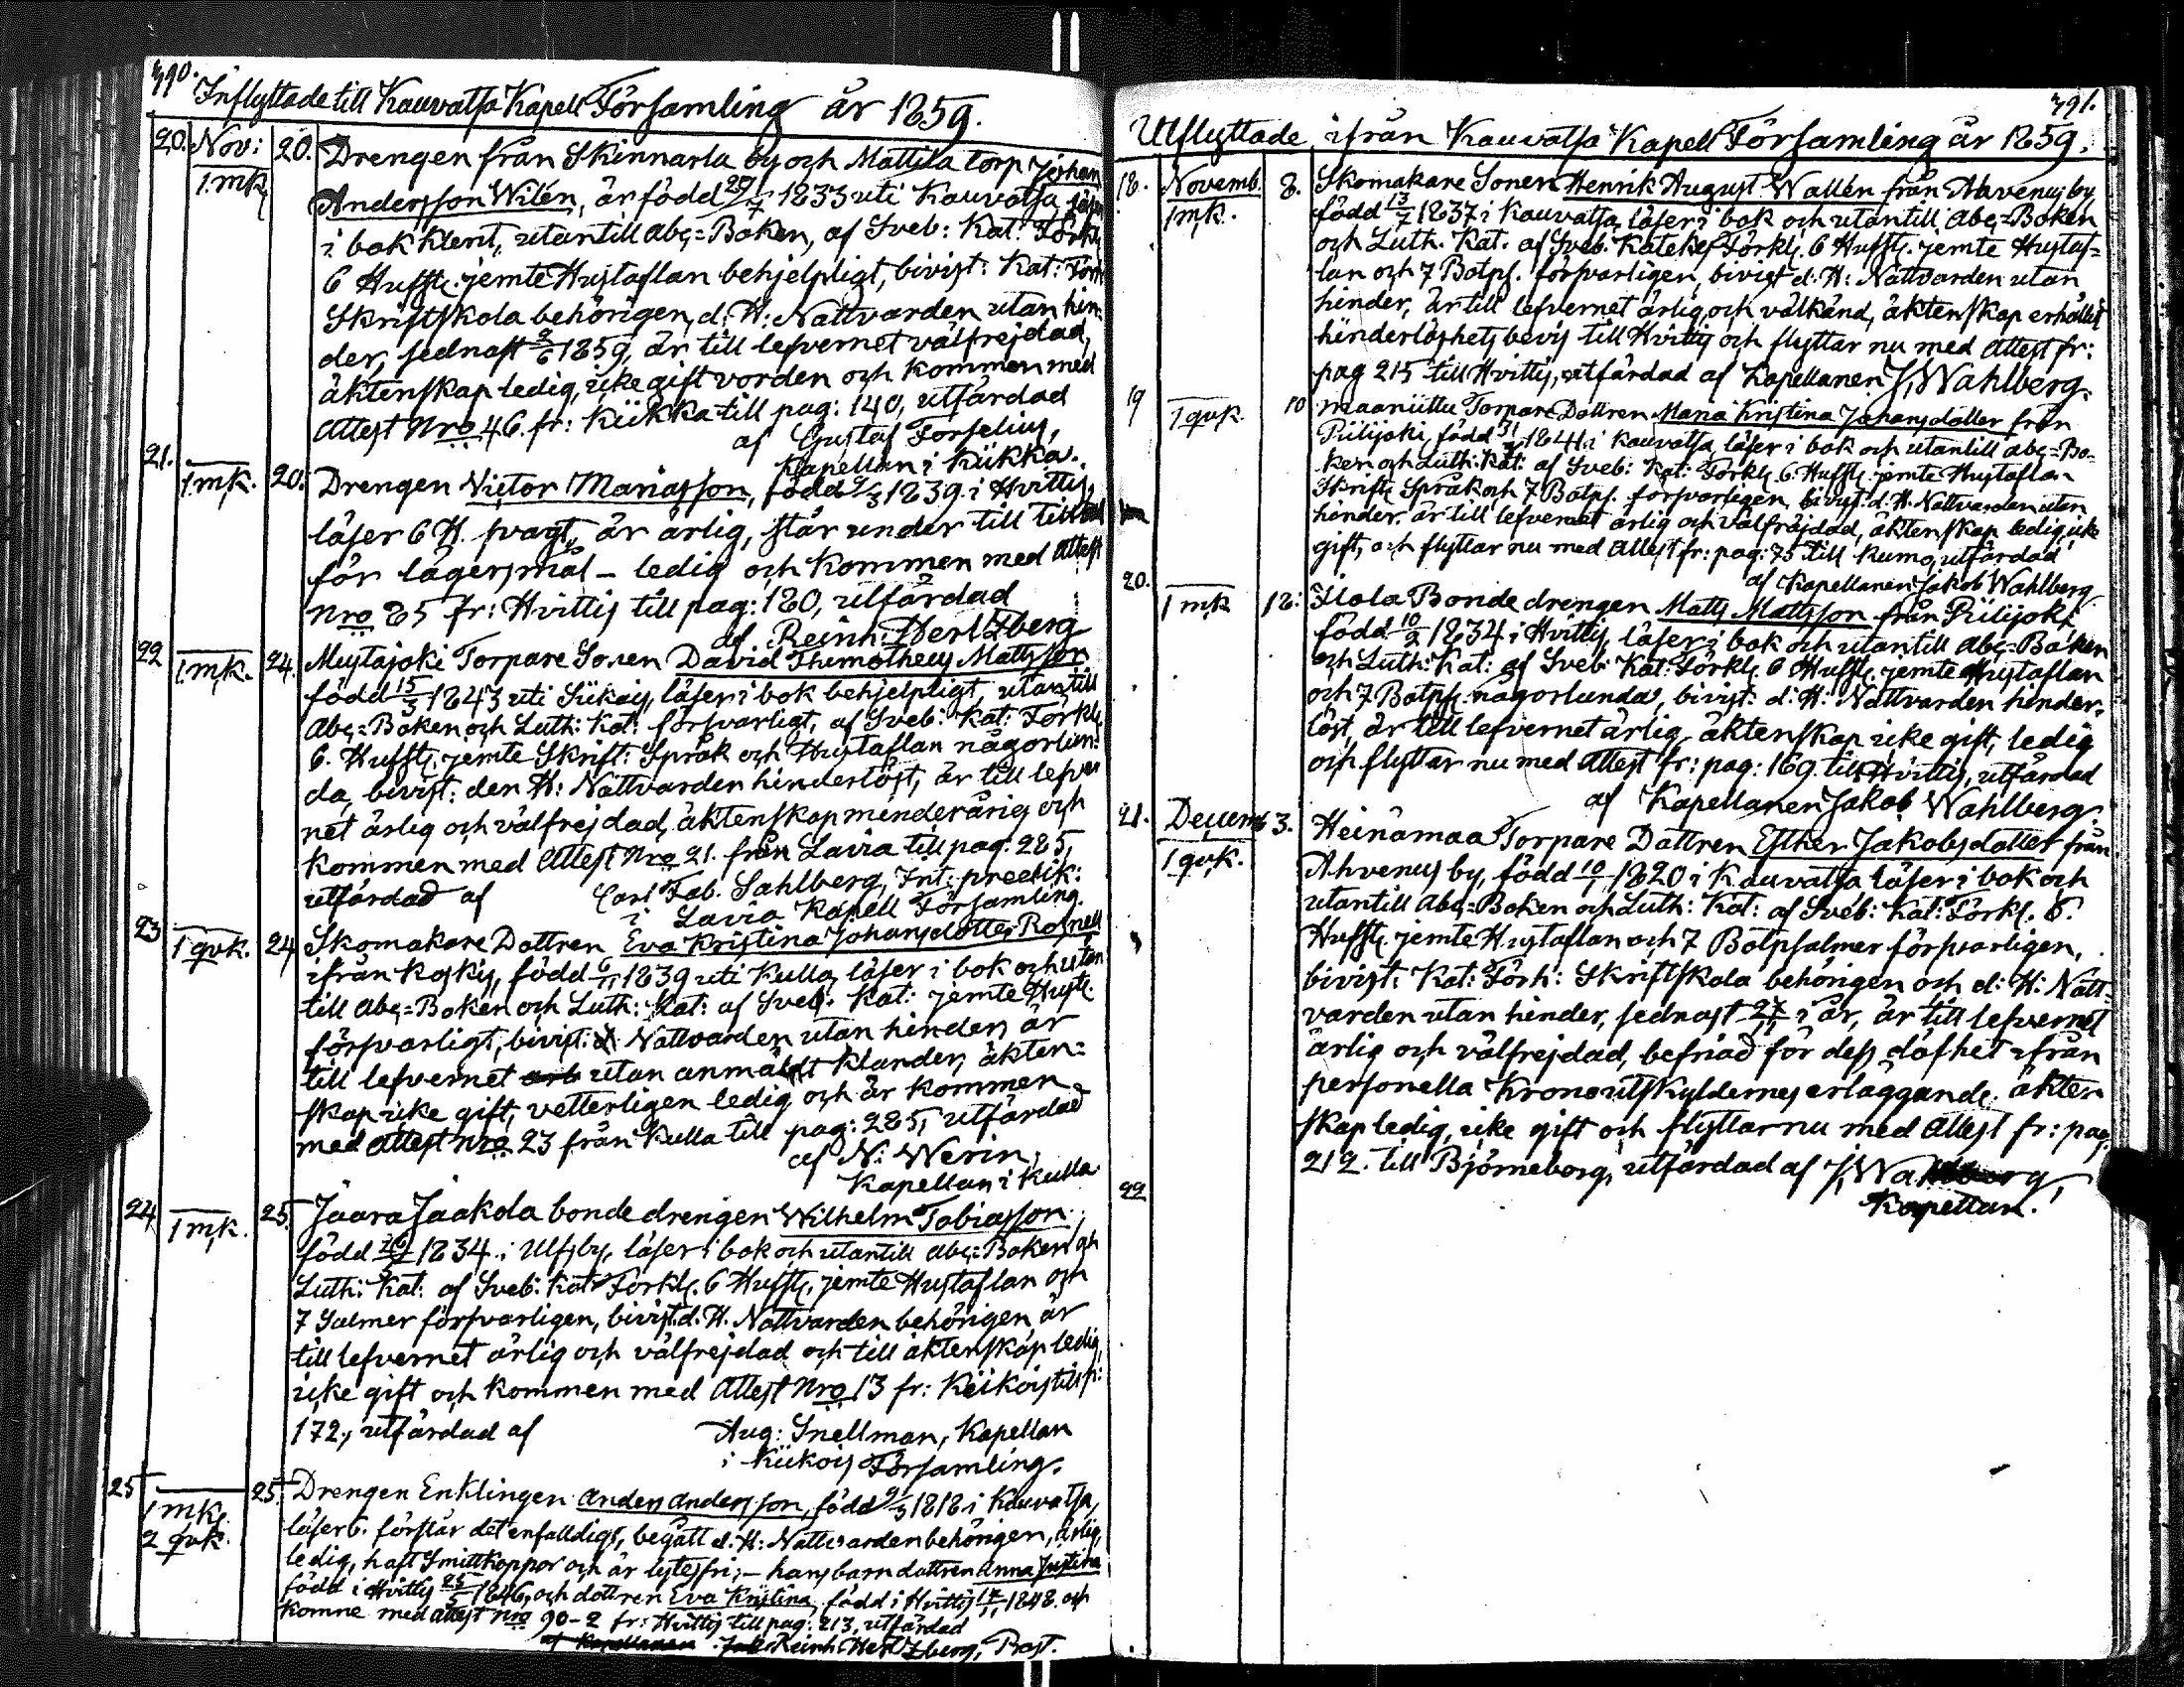 390.
Inflyttade till Kauvatsa Kapell Församling år 1859.
20. Nov: 20. Drengen från Skinnarla by och Mattila torp Johan
1 mk. Andersson Wilén, är född 29/7 1833 uti Kauvatsa, läser
i bok klent, utantill Abc=Boken, af Sveb: Kat: Förkl.
6 Hufst. jemte Hustaflan behjelpligt, bivist: Kat: Förh:
Skriftskola behörigen, d. H: Nattvarden utan hin-
der, sednast 2/6 1859, är till lefvernet välfrejdad,
äktenskap ledig, icke gift vorden och kommen med
Attest Nro 46. fr: Kiikka till pag: 140, utfärdad
af Gustaf Forselius,
Kapellan i Kiikka.
21. 1 mk. 20. Drengen Victor Mariasson, född 9/3 1839. i Hvittis,
läser 6 H. svagt, är ärlig, står under till tilltal
för lägersmål – ledig och kommen med Attest
Nro 85 fr: Hvittis till pag: 180, utfärdad
af Reinh: Hertzberg
22 1 mk. 24. Mustajoki Torpare Sonen David Thimotheus Mattsson
född 15/3 1843 uti Siikais, läser i bok behjelpligt, utantill
Abc=Boken och Luth: Kat: försvarligt, af Sveb: Kat: Förkl.
6. Hufst. jemte Skrift: Språk och Hustaflan någorlun-
da, bivist: den H: Nattvarden hinderlöst, är till lefver
net ärlig och välfrejdad, äktenskap minderårig och
kommen med Attest Nro 21. från Lavia till pag. 285,
utfärdad af Carl Fab. Sahlberg, Int: predik:
i Lavia Kapell Församling.
23 1 qvk. 24 Skomakare Dottren Eva Kristina Johansdotter Rosnell
ifrån Koskis, född 6/11 1839 uti Kulla, läser i bok och utan
till Abc=Boken och Luth: Kat: af Sveb: Kat: jemte Hust.
försvarligt, bivist: d. Nattvarden utan hinder, är
till lefvernet utan anmäldt klander, äkten=
skap icke gift, vetterligen ledig och är kommen
med Attest Nro 23 från Kulla till pag: 285, utfärdad
af N: Werin,
Kapellan i Kulla
24 1 mk. 25. Jaara Jaakola bonde drengen Wilhelm Tobiasson
född 1834. i Ulfsby, läser i bok och utantill Abc=Boken och
Luth: Kat: af Sveb: Kat: Förkl. 6 Hufst. jemte Hustaflan och
7 Salmer försvarligen, bivist. d. H. Nattvarden behörigen är
till lefvernet ärlig och välfrejdad och till äktenskap ledig,
icke gift och kommen med Attest Nro 13 fr: Kiikois till p:
172, utfärdad af Aug: Snellman, Kapellan
i Kiikois Församling.
25 25. Drengen Enklingen Anders Andersson, född 9/3 1818 i Kauvatsa,
1 mk. läser 6. förstår det enfalldigt, begått d. H: Nattvarden behörigen, ärlig,
2 qvk. ledig, haft Smittkoppor och är lytesfri; – hans barn dottren Anna Justina
född i Hvittis 25/5 1846, och dottren Eva Kristina, född i Hvittis 1848. och
komne med Attest Nro 90–2 fr: Hvittis till pag: 213, utfärdad
af Kapellanen Reinh Hertzberg, Prost.
391.
Utflyttade ifrån Kauvatsa Kapell Församling år 1859.
18. Novemb. 8. Skomakare Sonen Henrik August Wallén från Ahvenus by
1 mk. född 13/7 1837 i Kauvatsa, läser i bok och utantill Abc=Boken
och Luth. Kat. af Sveb. Katekes Förkl. 6 Hufst. jemte Hustaf=
lan och 7 Botps. försvarligen, bivist d. H: Nattvarden utan
hinder, är till lefvernet ärlig och välkänd, äktenskap erhållit
hinderlöshets bevis till Hvittis och flyttar nu med Attest fr:
pag 215 till Hvittis, utfärdad af Kapellanen J. Wahlberg.
19 1 qvk. 10 Maaniittu Torpare Dottren Maria Kristina Johansdotter från
Piilijoki, född 1841 i Kauvatsa, läser i bok och utantill abc=Bo-
ken och Luth: Kat: af Sveb: Kat: Förkl. 6. Hufst. jemte Hustaflan
Skrift Språk och 7 Botps. försvarligen, bivist. d. H. Nattvarden utan
hinder. är till lefvernet ärlig och välfrejdad, äktenskap ledig, icke
gift, och flyttar nu med Attest fr: pag: 75 till Kumo, utfärdad
af Kapellanen Jakob Wahlberg
20. 1 mk 18. Iso­la Bonde drengen Matts Mattsson från Piilijoki,
född 10/2 1834 i Hvittis, läser i bok och utantill Abc=Boken
och Luth: Kat: af Sveb: Kat: Förkl. 6 Hufst. jemte Hustaflan
och 7 Botps. någorlunda, bivist: d: H: Nattvarden hinder-
löst, är till lefvernet ärlig, äktenskap icke gift, ledig
och flyttar nu med Attest fr: pag: 169. till Hvittis, utfärdad
af Kapellanen Jakob Wahlberg.
21. Decemb 3. Heinämaa Torpare Dottren Esther Jakobsdotter från
1 qvk. Ahvenus by, född 10/1 1820 i Kauvatsa läser i bok och
utantill Abc=Boken och Luth: Kat: af Sveb: Kat: Förkl. 6.
Hufst. jemte Hustaflan och 7 Botpsalmer försvarligen,
bivist: Kat: Förh: Skriftskola behörigen och d: H: Natt=
varden utan hinder, sednast 27/11 i år, är till lefvernet
ärlig och välfrejdad, befriad för dess döfhet ifrån
personella Kronoutskyldernes erläggande. äkten
skap ledig, icke gift och flyttar nu med Attest fr: pag.
212. till Björneborg, utfärdad af J. Wahlberg,
Kapellan.
22